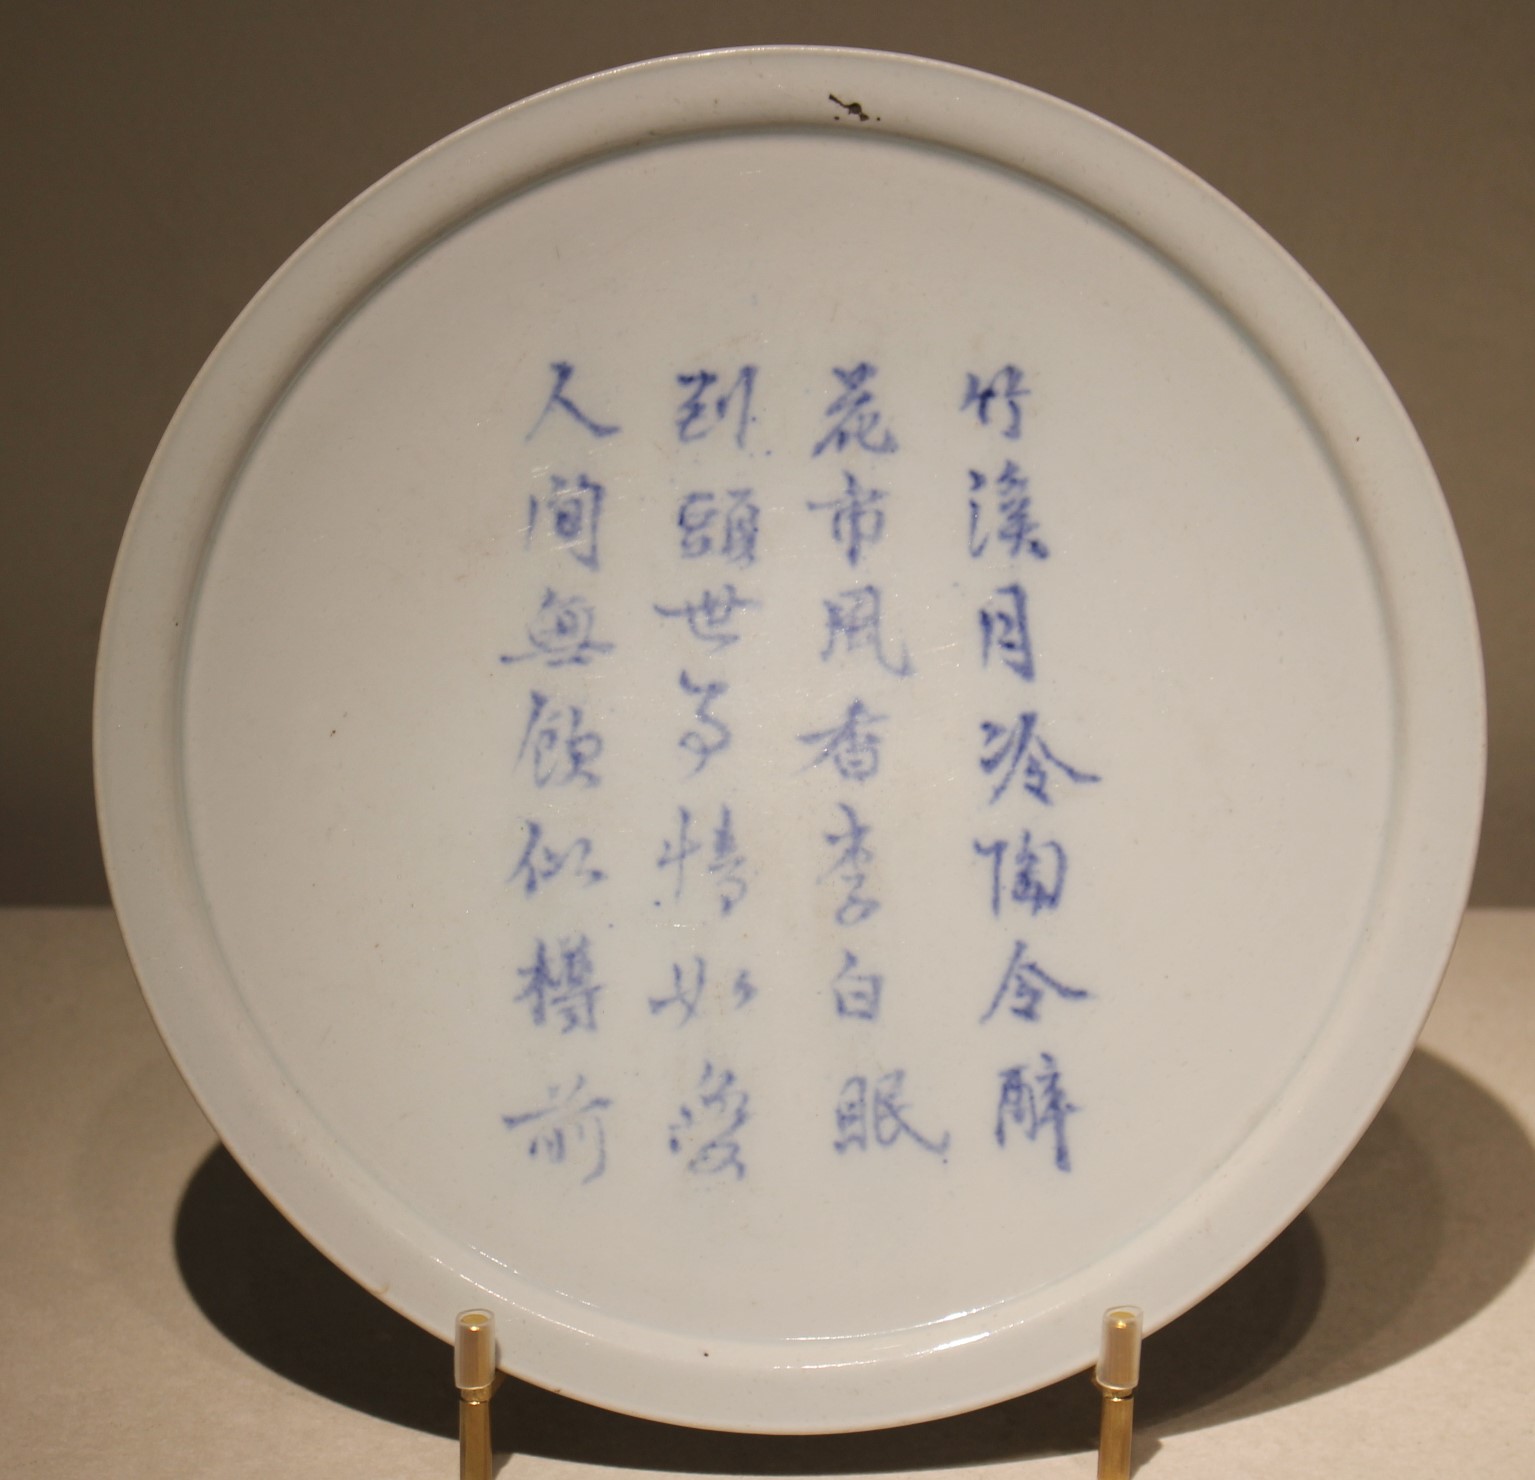 竹溪月冷陶令醉
花市風香李白眠
到頭世事情如夢
人間無飮似樽前